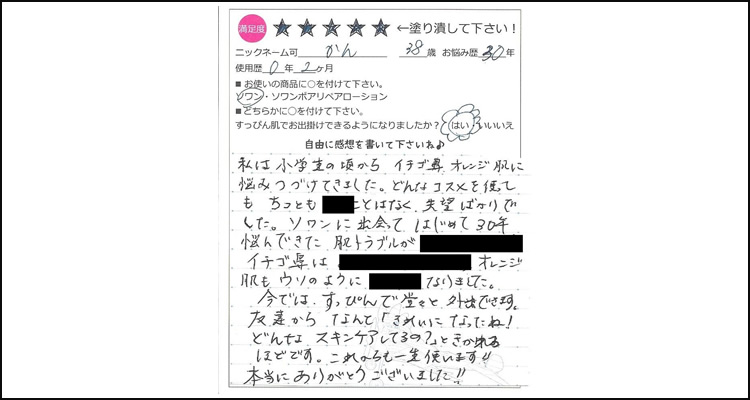 満足度 ★★★★★ ←塗り潰して下さい！
ニックネーム可 かん 38歳 お悩み歴 30年
使用歴 0年 2ヶ月
■ お使いの商品に○を付けて下さい。
ソワン・ソワンポアリペアローション
■どちらかに○を付けて下さい。
すっぴん肌でお出掛けできるようになりましたか？ はい・いいえ
自由に感想を書いて下さいね♪
私は小学生の頃から イチゴ鼻 オレンジ肌に
悩みつづけてきました。どんなコスメを使って
も ちっとも ことはなく 失望ばかりで
した。ソワンに出会って はじめて 30年
悩んできた 肌トラブルが
イチゴ鼻は オレンジ
肌も ウソのように なりました。
今では、すっぴんで堂々と 外出できます。
友達から なんて「きれいになったね！
どんな スキンケアしてるの？」ときかれる
ほどです。これからも一生使います!!
本当にありがとうございました!!